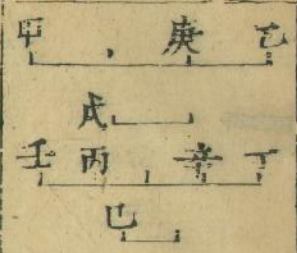 甲 庚 乙
戊
壬 丙 辛 丁
己